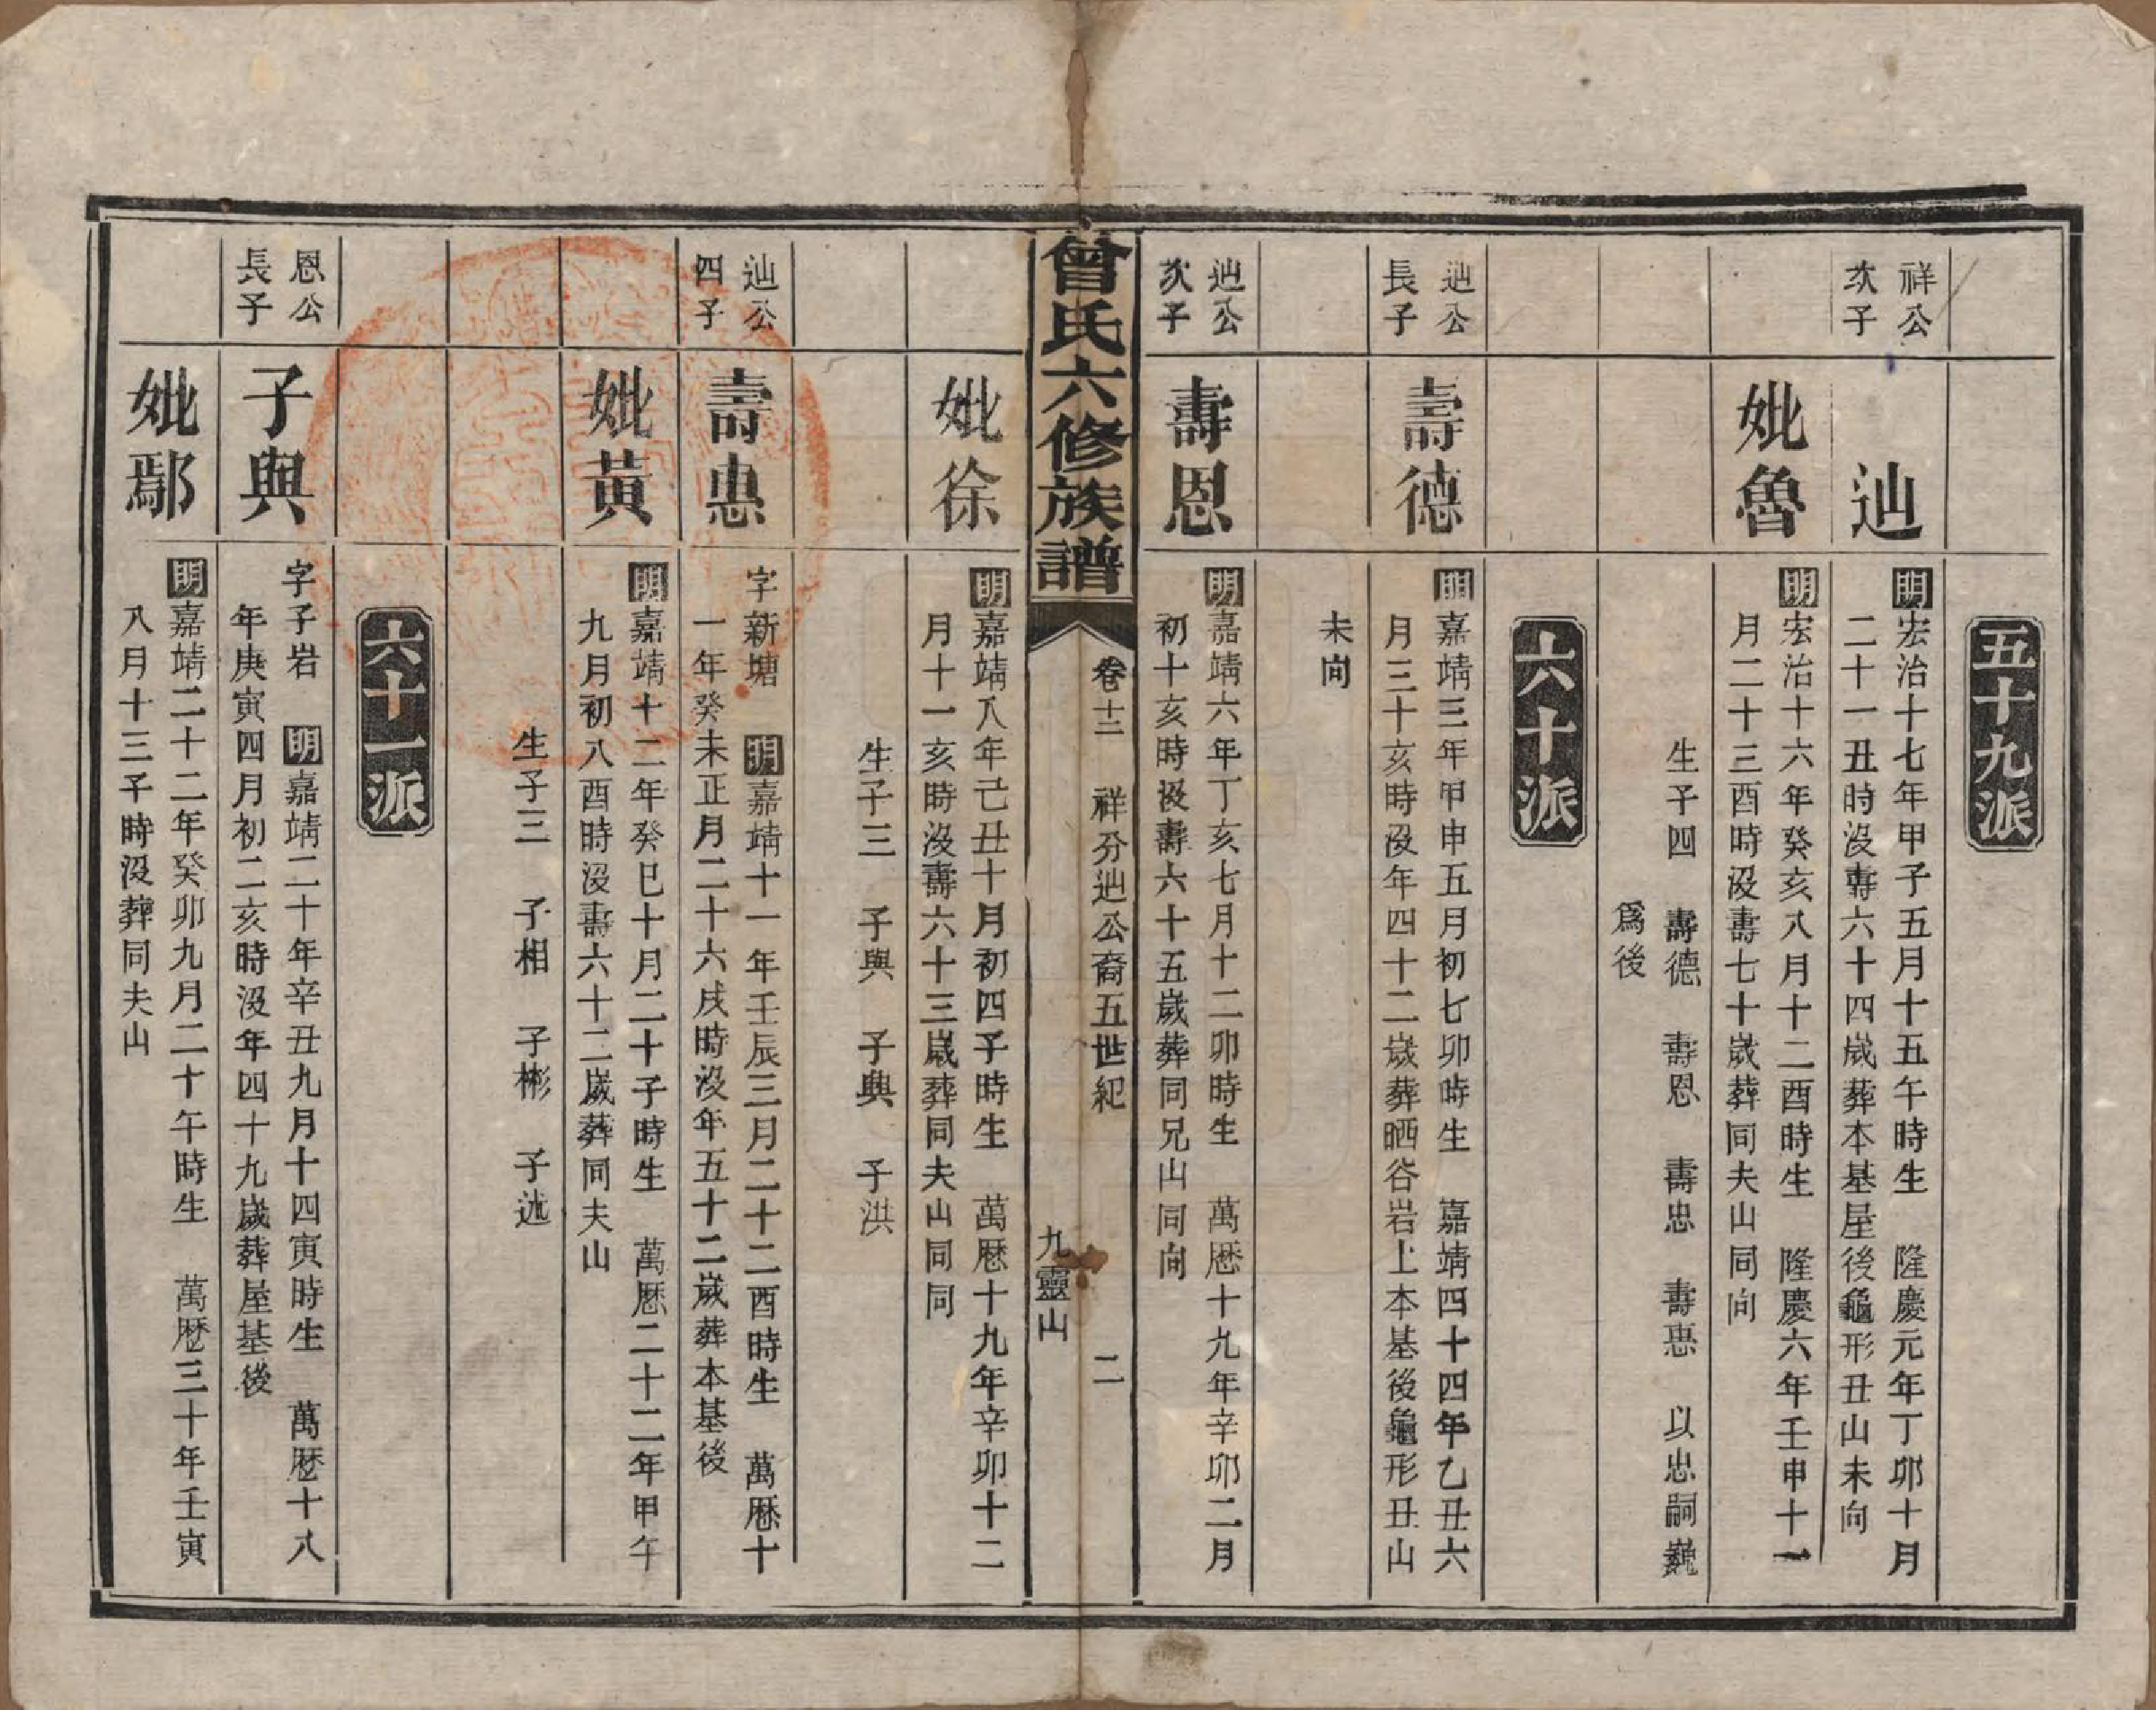 五十九派
祥公
次子
辿
明宏治十七年甲子五月十五午時生　隆慶元年丁卯十月
二十一丑時沒壽六十四歲葬本基屋後龜形丑山未向
妣魯
明宏治十六年癸亥八月十二酉時生　隆慶六年壬申十一
月二十三酉時沒壽七十歲葬同夫山同向
生子四　壽德　壽恩　壽忠　壽惠　以忠嗣巍
爲後
六十派
辿公
長子
壽德
明嘉靖三年甲申五月初七卯時生　嘉靖四十四年乙丑六
月三十亥時沒年四十二歲葬晒谷岩上本基後龜形丑山
未向
辿公
次子
壽恩
明嘉靖六年丁亥七月十二卯時生　萬厯十九年辛卯二月
初十亥時沒壽六十五歲葬同兄山同向
曾氏六修族譜
卷十三　祥分辿公裔五世紀　二
九靈山
妣徐
明嘉靖八年己丑十月初四子時生　萬厯十九年辛卯十二
月十一亥時沒壽六十三歲葬同夫山同同
生子三　子與　子興　子洪
辿公
四子
壽惠
字新塘　明嘉靖十一年壬辰三月二十二酉時生　萬厯十
一年癸未正月二十六戌時沒年五十二歲葬本基後
妣黃
明嘉靖十二年癸巳十月二十子時生　萬厯二十二年甲午
九月初八酉時沒壽六十二歲葬同夫山
生子三　子相　子彬　子述
六十一派
恩公
長子
子與
字子岩　明嘉靖二十年辛丑九月十四寅時生　萬厯十八
年庚寅四月初二亥時沒年四十九歲葬屋基後
妣鄢
明嘉靖二十二年癸卯九月二十午時生　萬厯三十年壬寅
八月十三子時沒葬同夫山